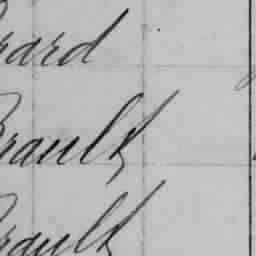 rard
Brault
Brault